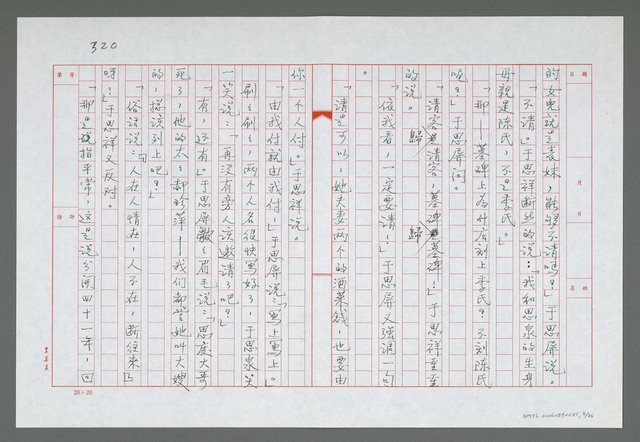 320
的女兒就是表妹，能夠不請嗎？」于思屏說。
「不請。」于思祥斷然的說：「我和思泉的生身
母親是陳氏，不是李氏。」
「那——墓碑上為什麼刻上李氏？不刻陳氏
呢？」于思屏問。
「請客歸請客，墓碑歸墓碑！」于思祥至至
的說。
「依我看，一定要請！」于思屏又強調一句
。
「請是可以，她夫妻兩個的酒菜錢，也要由
你一個人付。」于思祥說。
「由我付就由我付，」于思屏說：「寫上寫上。」
刷刷刷，兩個人名很快寫好了，于思泉笑
一笑說：「再沒有旁人該邀請了吧？」
「有，還有。」于思屏皺皺眉毛說：「思庭大哥
死了，他的太太郝珍萍——我們都管她叫大嫂
的，應該列上吧？」
「俗話說：『人在人情在，人不在，斷往來』
呀！」于思祥又反對。
「那是說指平常，這是說分開四十一年，回
題目
月
日
姓名
第
章
20×20
NMTL 20060890021, 7/26